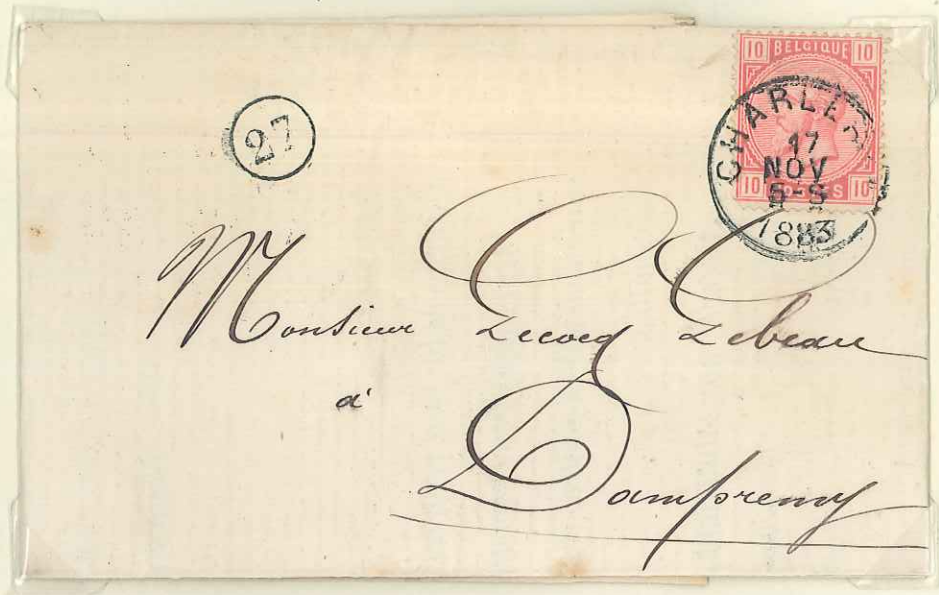 10 BELGIQUE 10
10 10
CHARLER
17
NOV
5-S
1883
27
Monsieur Lecocq Lebeau
à
Dampremy